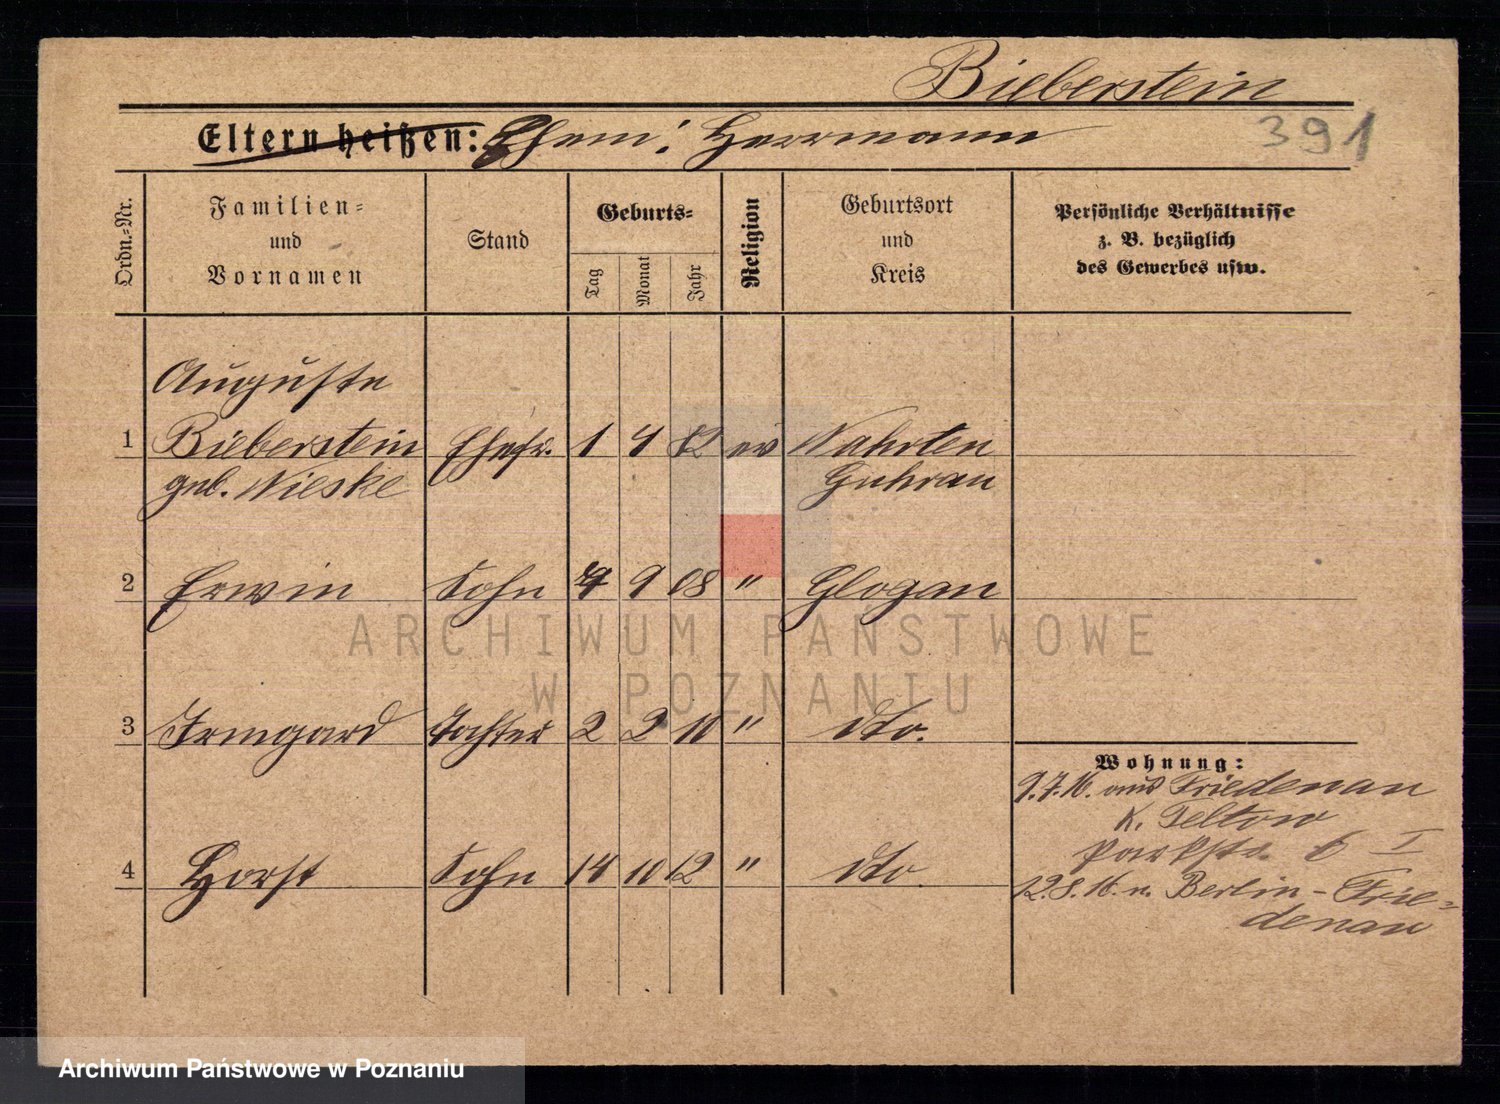 Bieberstein
Eltern heißen: Ehem: Herrmann
391
Ordn.-Nr.
Familien-
und
Vornamen
Stand
Geburts-
Tag
Monat
Jahr
Religion
Geburtsort
und
Kreis
Persönliche Verhältnisse
z. B. bezüglich
des Gewerbes usw.
Auguste
1 Bieberstein Ehefr. 1 4 82 ev Nahrten
geb. Nieske Guhrau
2 Erwin Sohn 9 08 " Glogau
3 Irmgard Tochter 2 2 10 " dto.
4 Horst Sohn 14 10 12 " dto.
Wohnung:
9.7.16. aus Friedenau
K. Teltow
Parkstr. 6 I
12.8.16. n. Berlin-Frie-
denau
ARCHIWUM PAŃSTWOWE
W POZNANIU
Archiwum Państwowe w Poznaniu